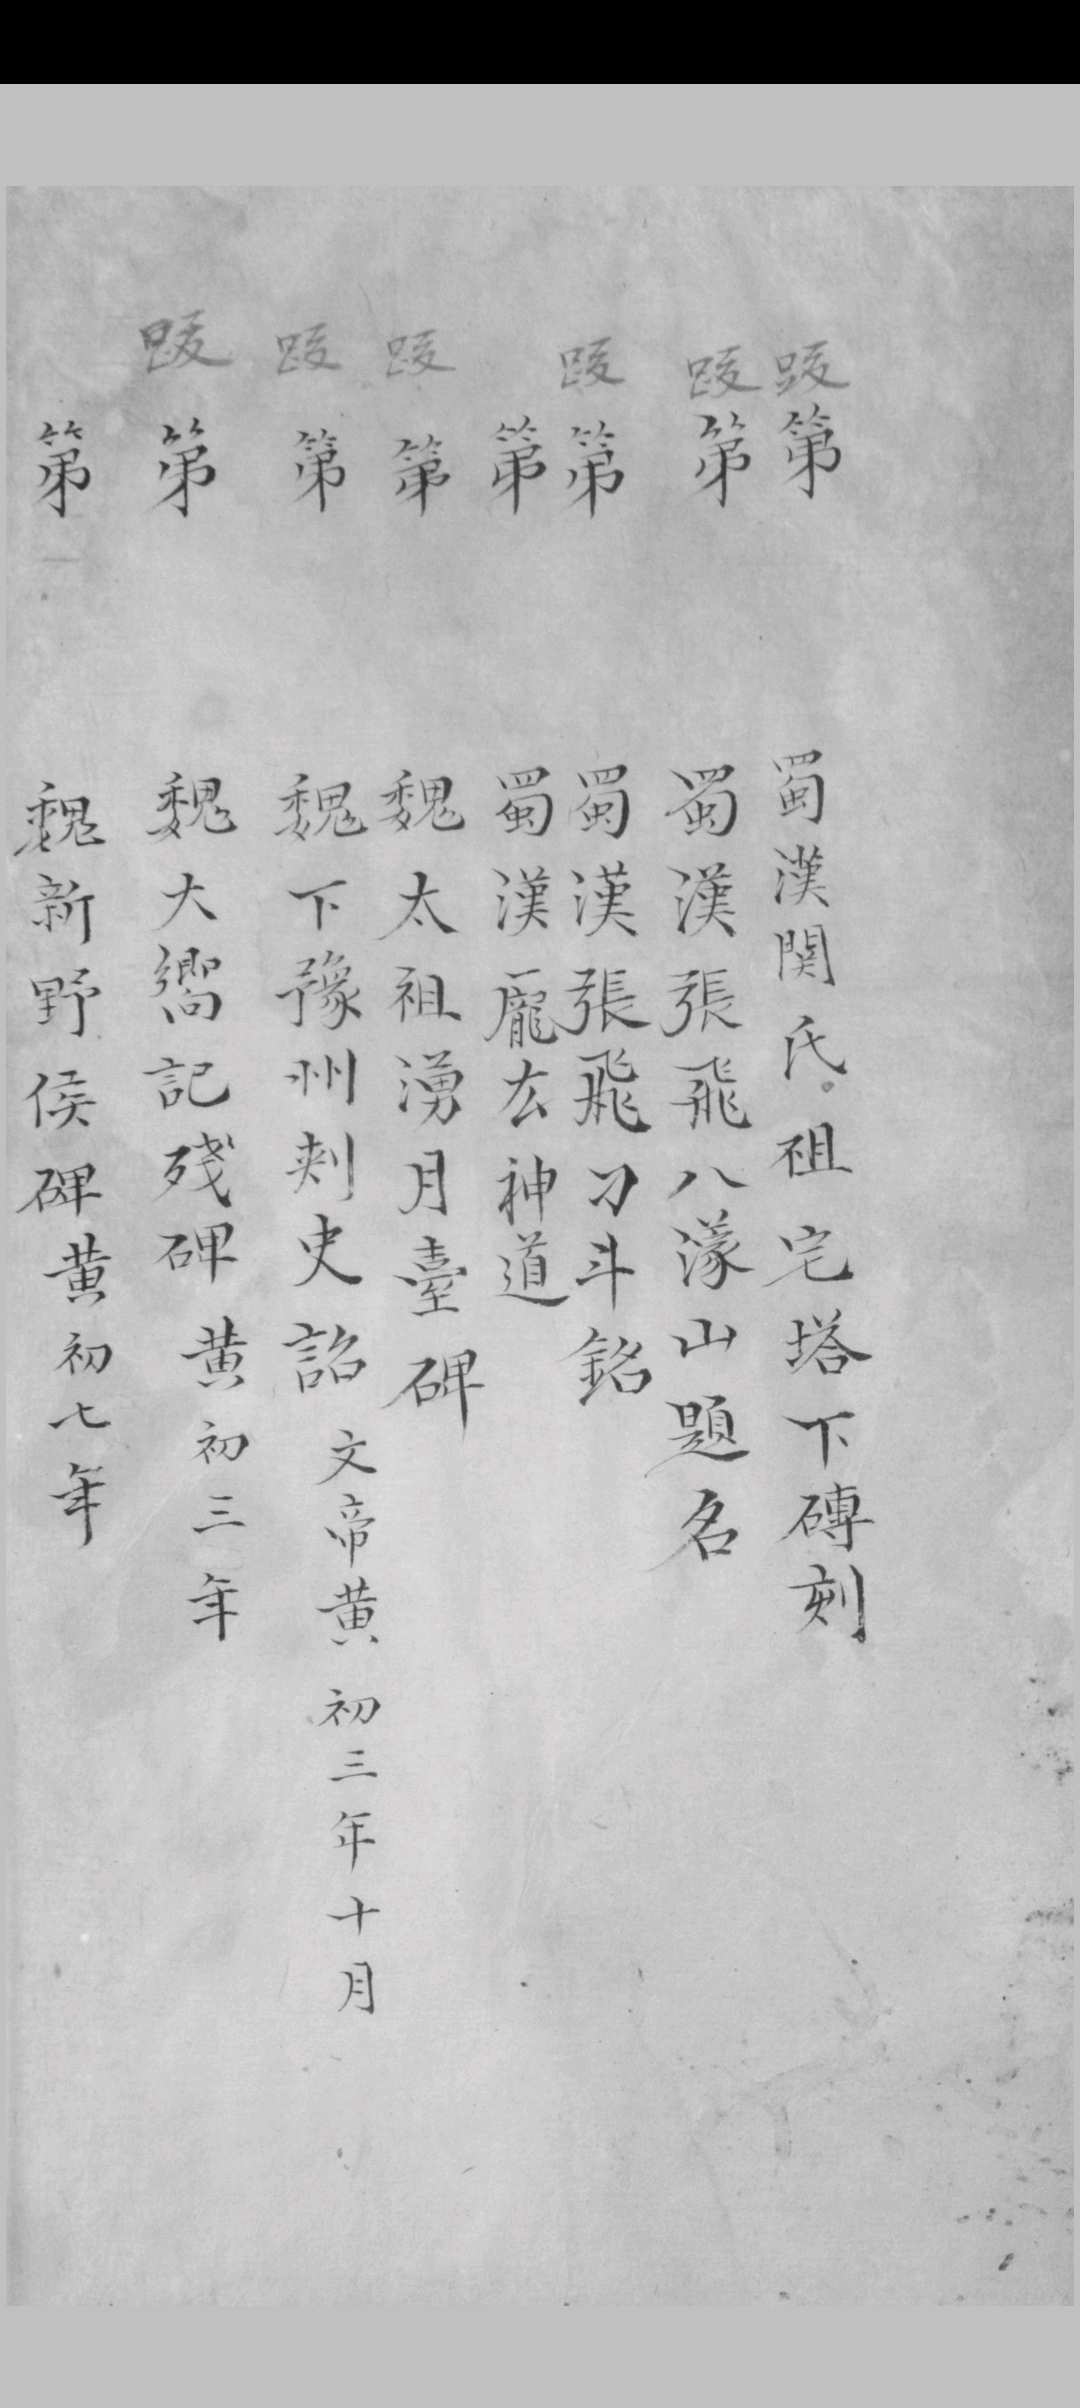 跋 第 蜀漢関氏祖宅塔下磚刻
跋 第 蜀漢張飛八濛山題名
跋 第 蜀漢張飛刁斗銘
第 蜀漢龐厷神道
跋 第 魏太祖湧月臺碑
跋 第 魏下豫州刾史詔 文帝黄初三年十月
跋 第 魏大嚮記殘碑 黄初三年
第 魏新野侯碑 黄初七年